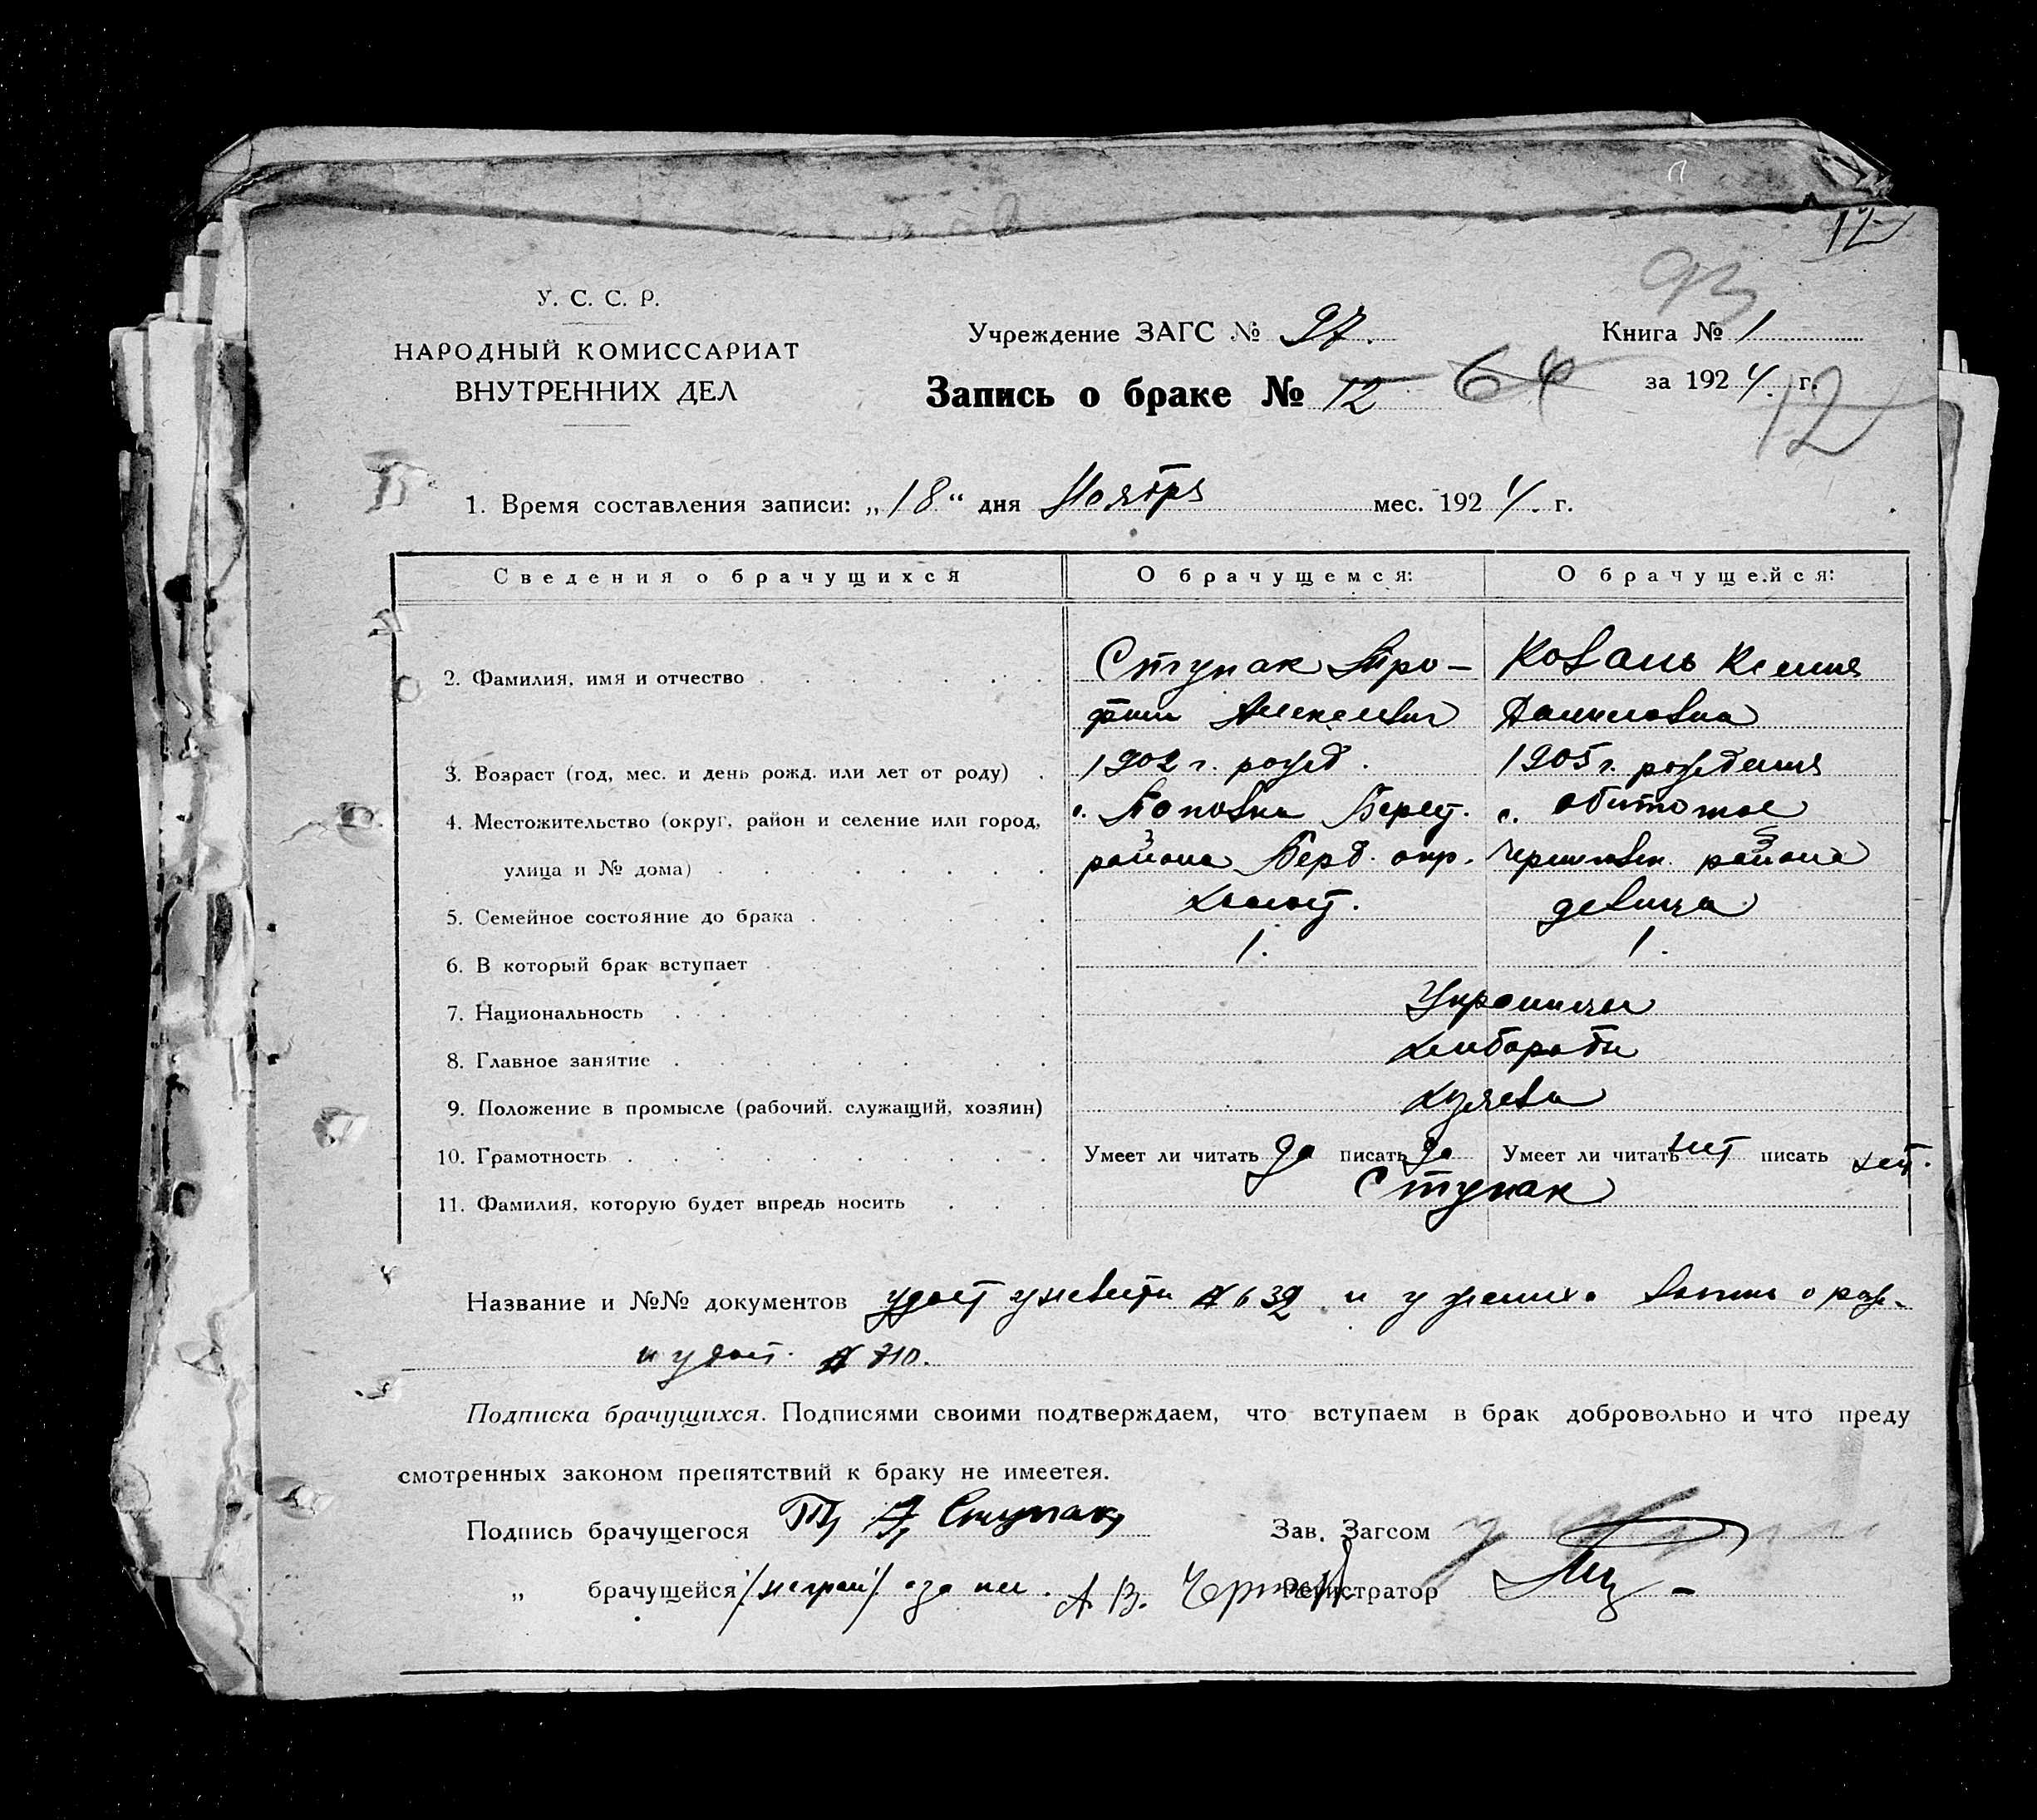 12
93
У. С. С. Р.
НАРОДНЫЙ КОМИССАРИАТ
ВНУТРЕННИХ ДЕЛ
Учреждение ЗАГС № 97.
Книга № 1
Запись о браке № 12 64
за 1924 г.
12
1. Время составления записи: „18“ дня Ноября мес. 1924. г.
Сведения о брачущихся О брачущемся: О брачущейся:
2. Фамилия, имя и отчество Ступак Тро- Коваль Ксения
фим Алексеевич Даниловна
3. Возраст (год, мес. и день рожд. или лет от роду) 1902 г. рожд. 1905 г. рождения
4. Местожительство (округ, район и селение или город, с. Поповка Берест. с. Обиточное
улица и № дома) района Берд. окр. района
5. Семейное состояние до брака холост. девица
6. В который брак вступает 1. 1.
7. Национальность Украинцы
8. Главное занятие хлебороби
9. Положение в промысле (рабочий, служащий, хозяин) хозяева
10. Грамотность Умеет ли читать да писать да Умеет ли читать нет писать нет.
11. Фамилия, которую будет впредь носить Ступак
Название и №№ документов удост у невести № 639 и у жениха о рож-
и удост. № 710.
Подписка брачущихся. Подписями своими подтверждаем, что вступаем в брак добровольно и что преду
смотренных законом препятствий к браку не имеетея.
Подпись брачущегося Т, А, Ступак Зав. Загсом
„ брачущейся /неграм/ за нее А В. Регистратор